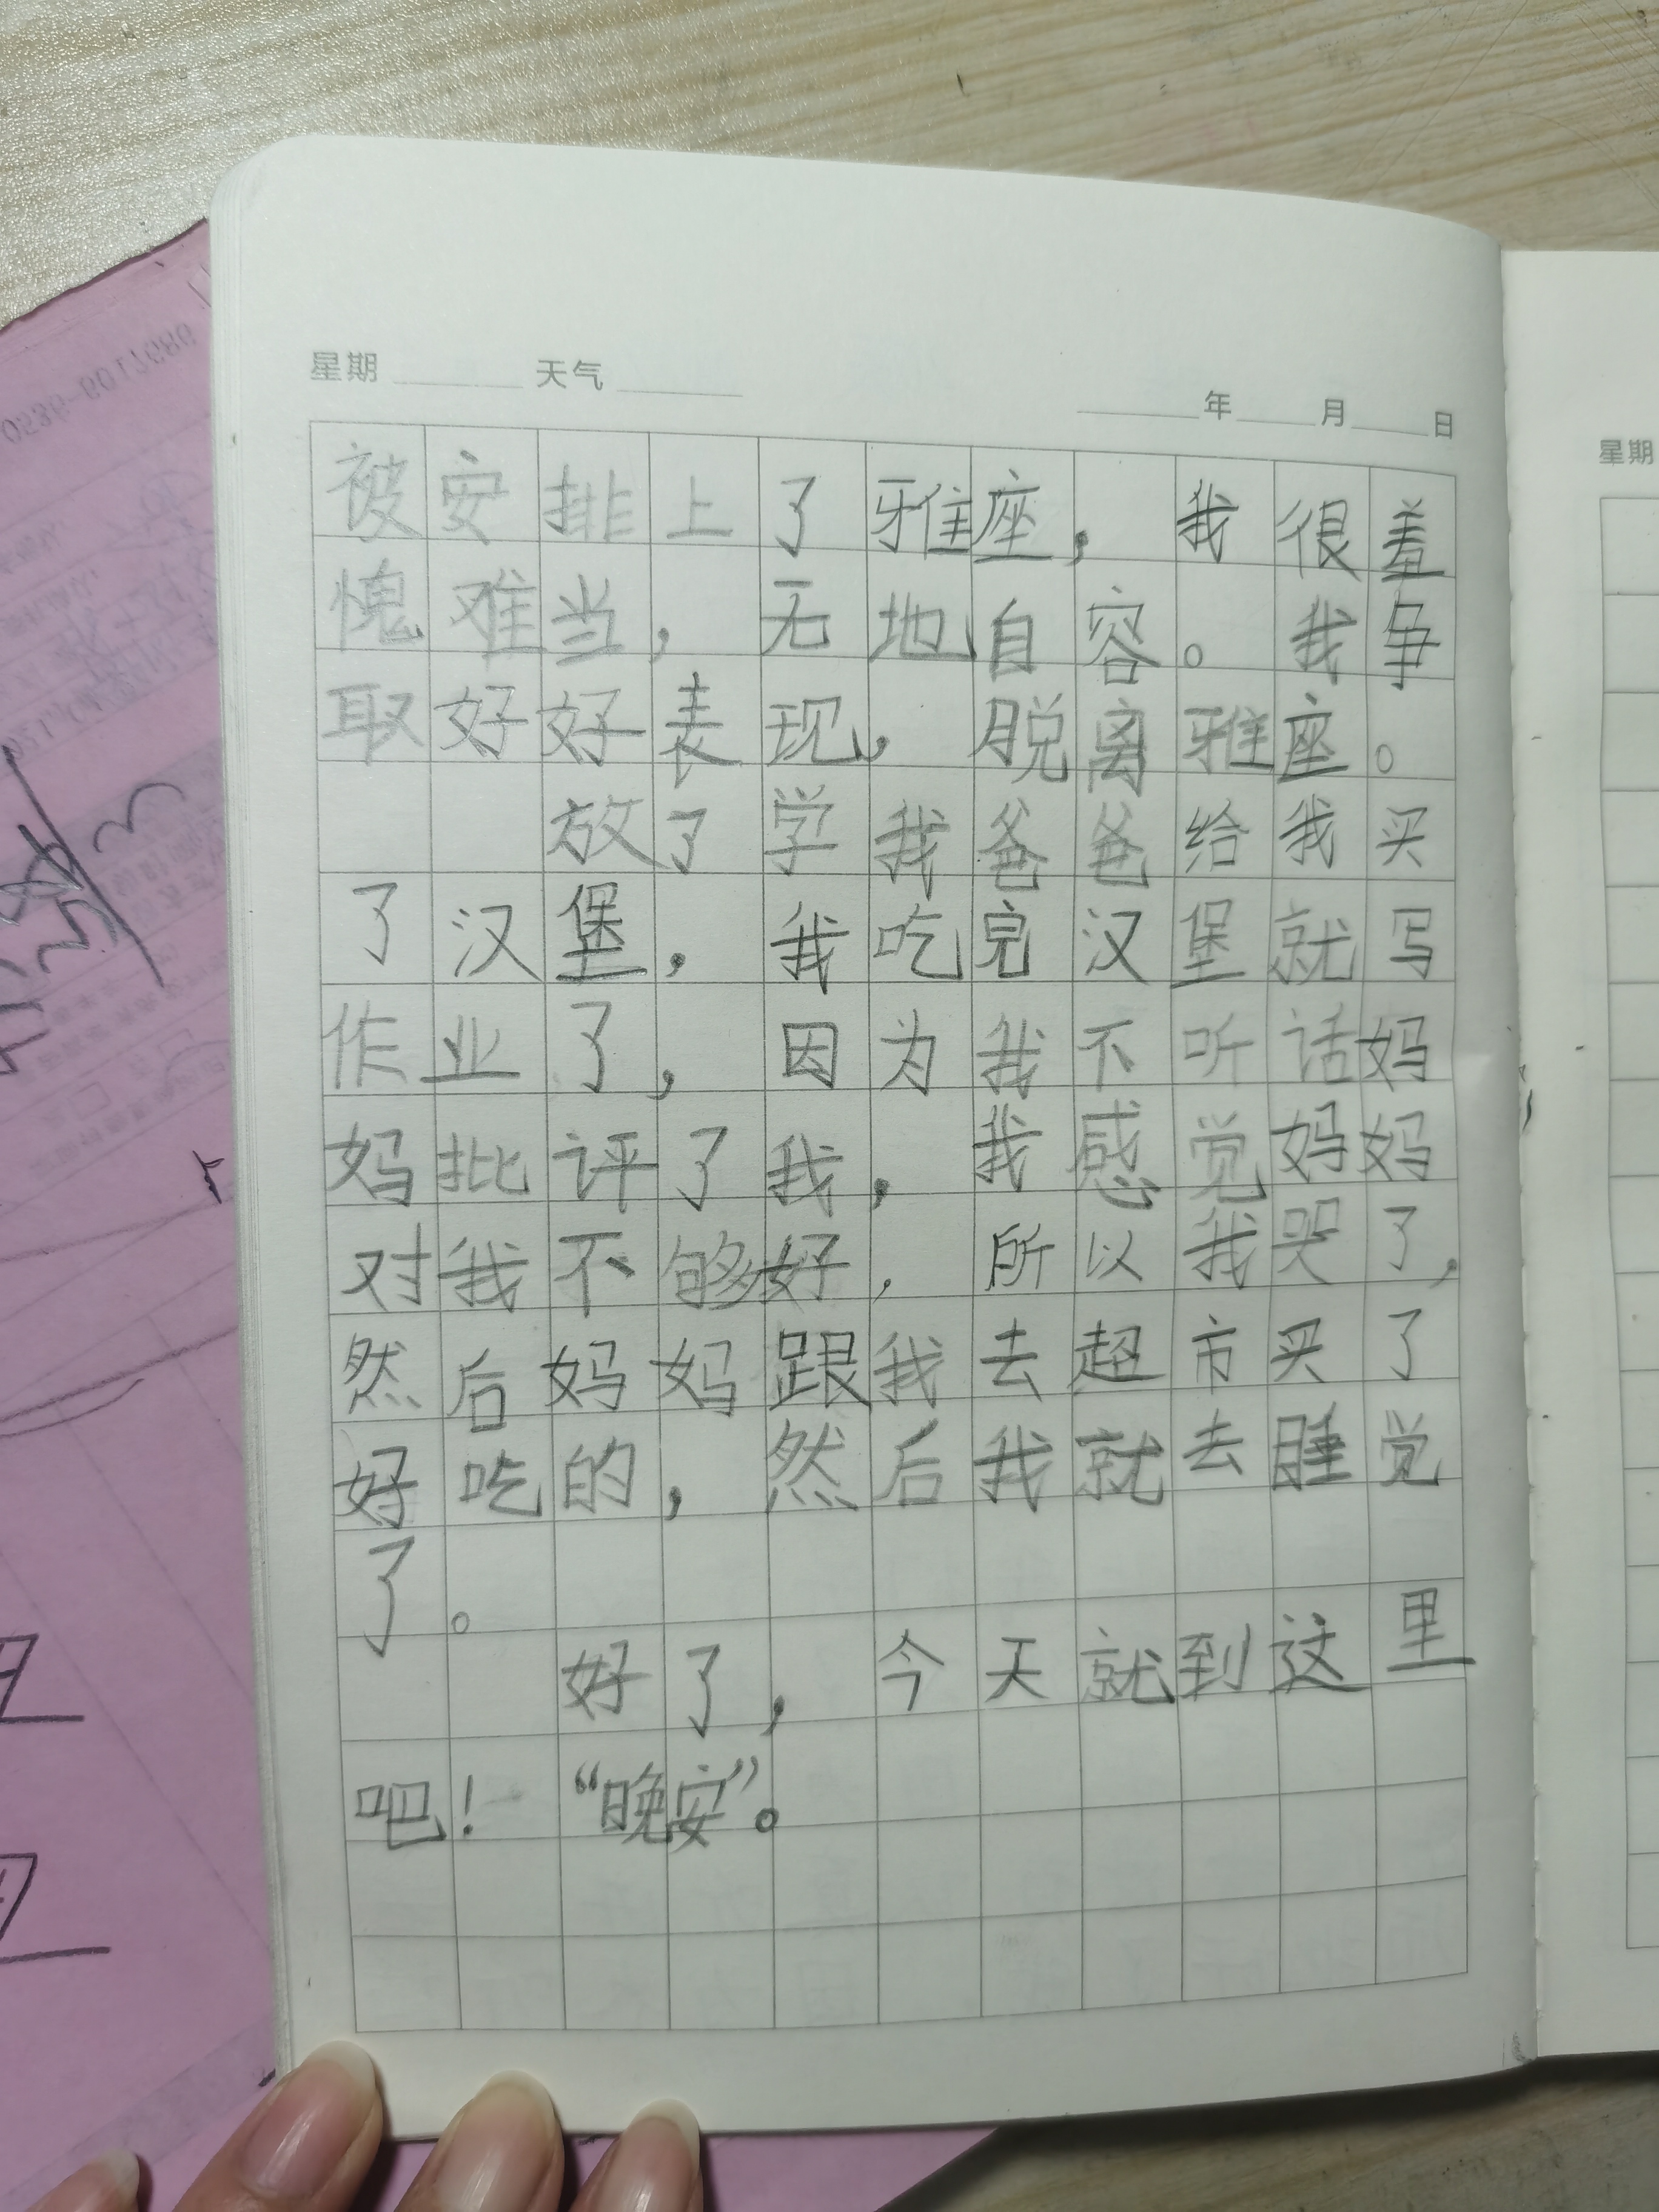 星期 天气 年 月 日
被安排上了雅座，我很羞
愧难当，无地自容。我争
取好好表现，脱离雅座。
放了学我爸爸给我买
了汉堡，我吃完汉堡就写
作业了，因为我不听话妈
妈批评了我，我感觉妈妈
对我不够好，所以我哭了，
然后妈妈跟我去超市买了
好吃的，然后我就去睡觉
了。
好了，今天就到这里
吧！“晚安”。
星期